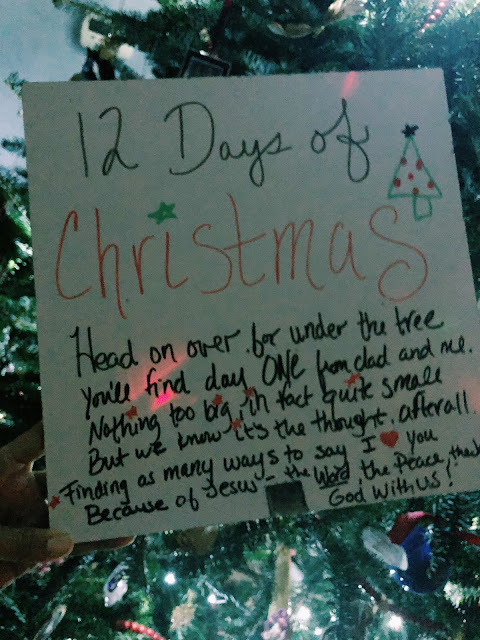 12 Days of
Christmas
Head on over for under the tree
You'll find day ONE from dad and me.
Nothing too big, in fact quite small
But we know it's the thought, afterall.
Finding as many ways to say I ❤ you
Because of Jesus - the Word, the Peace, the
God with us!